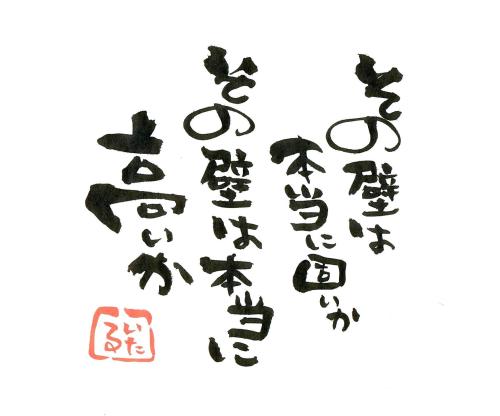 その壁は
本当に固いか
その壁は本当に
高いか
いたる